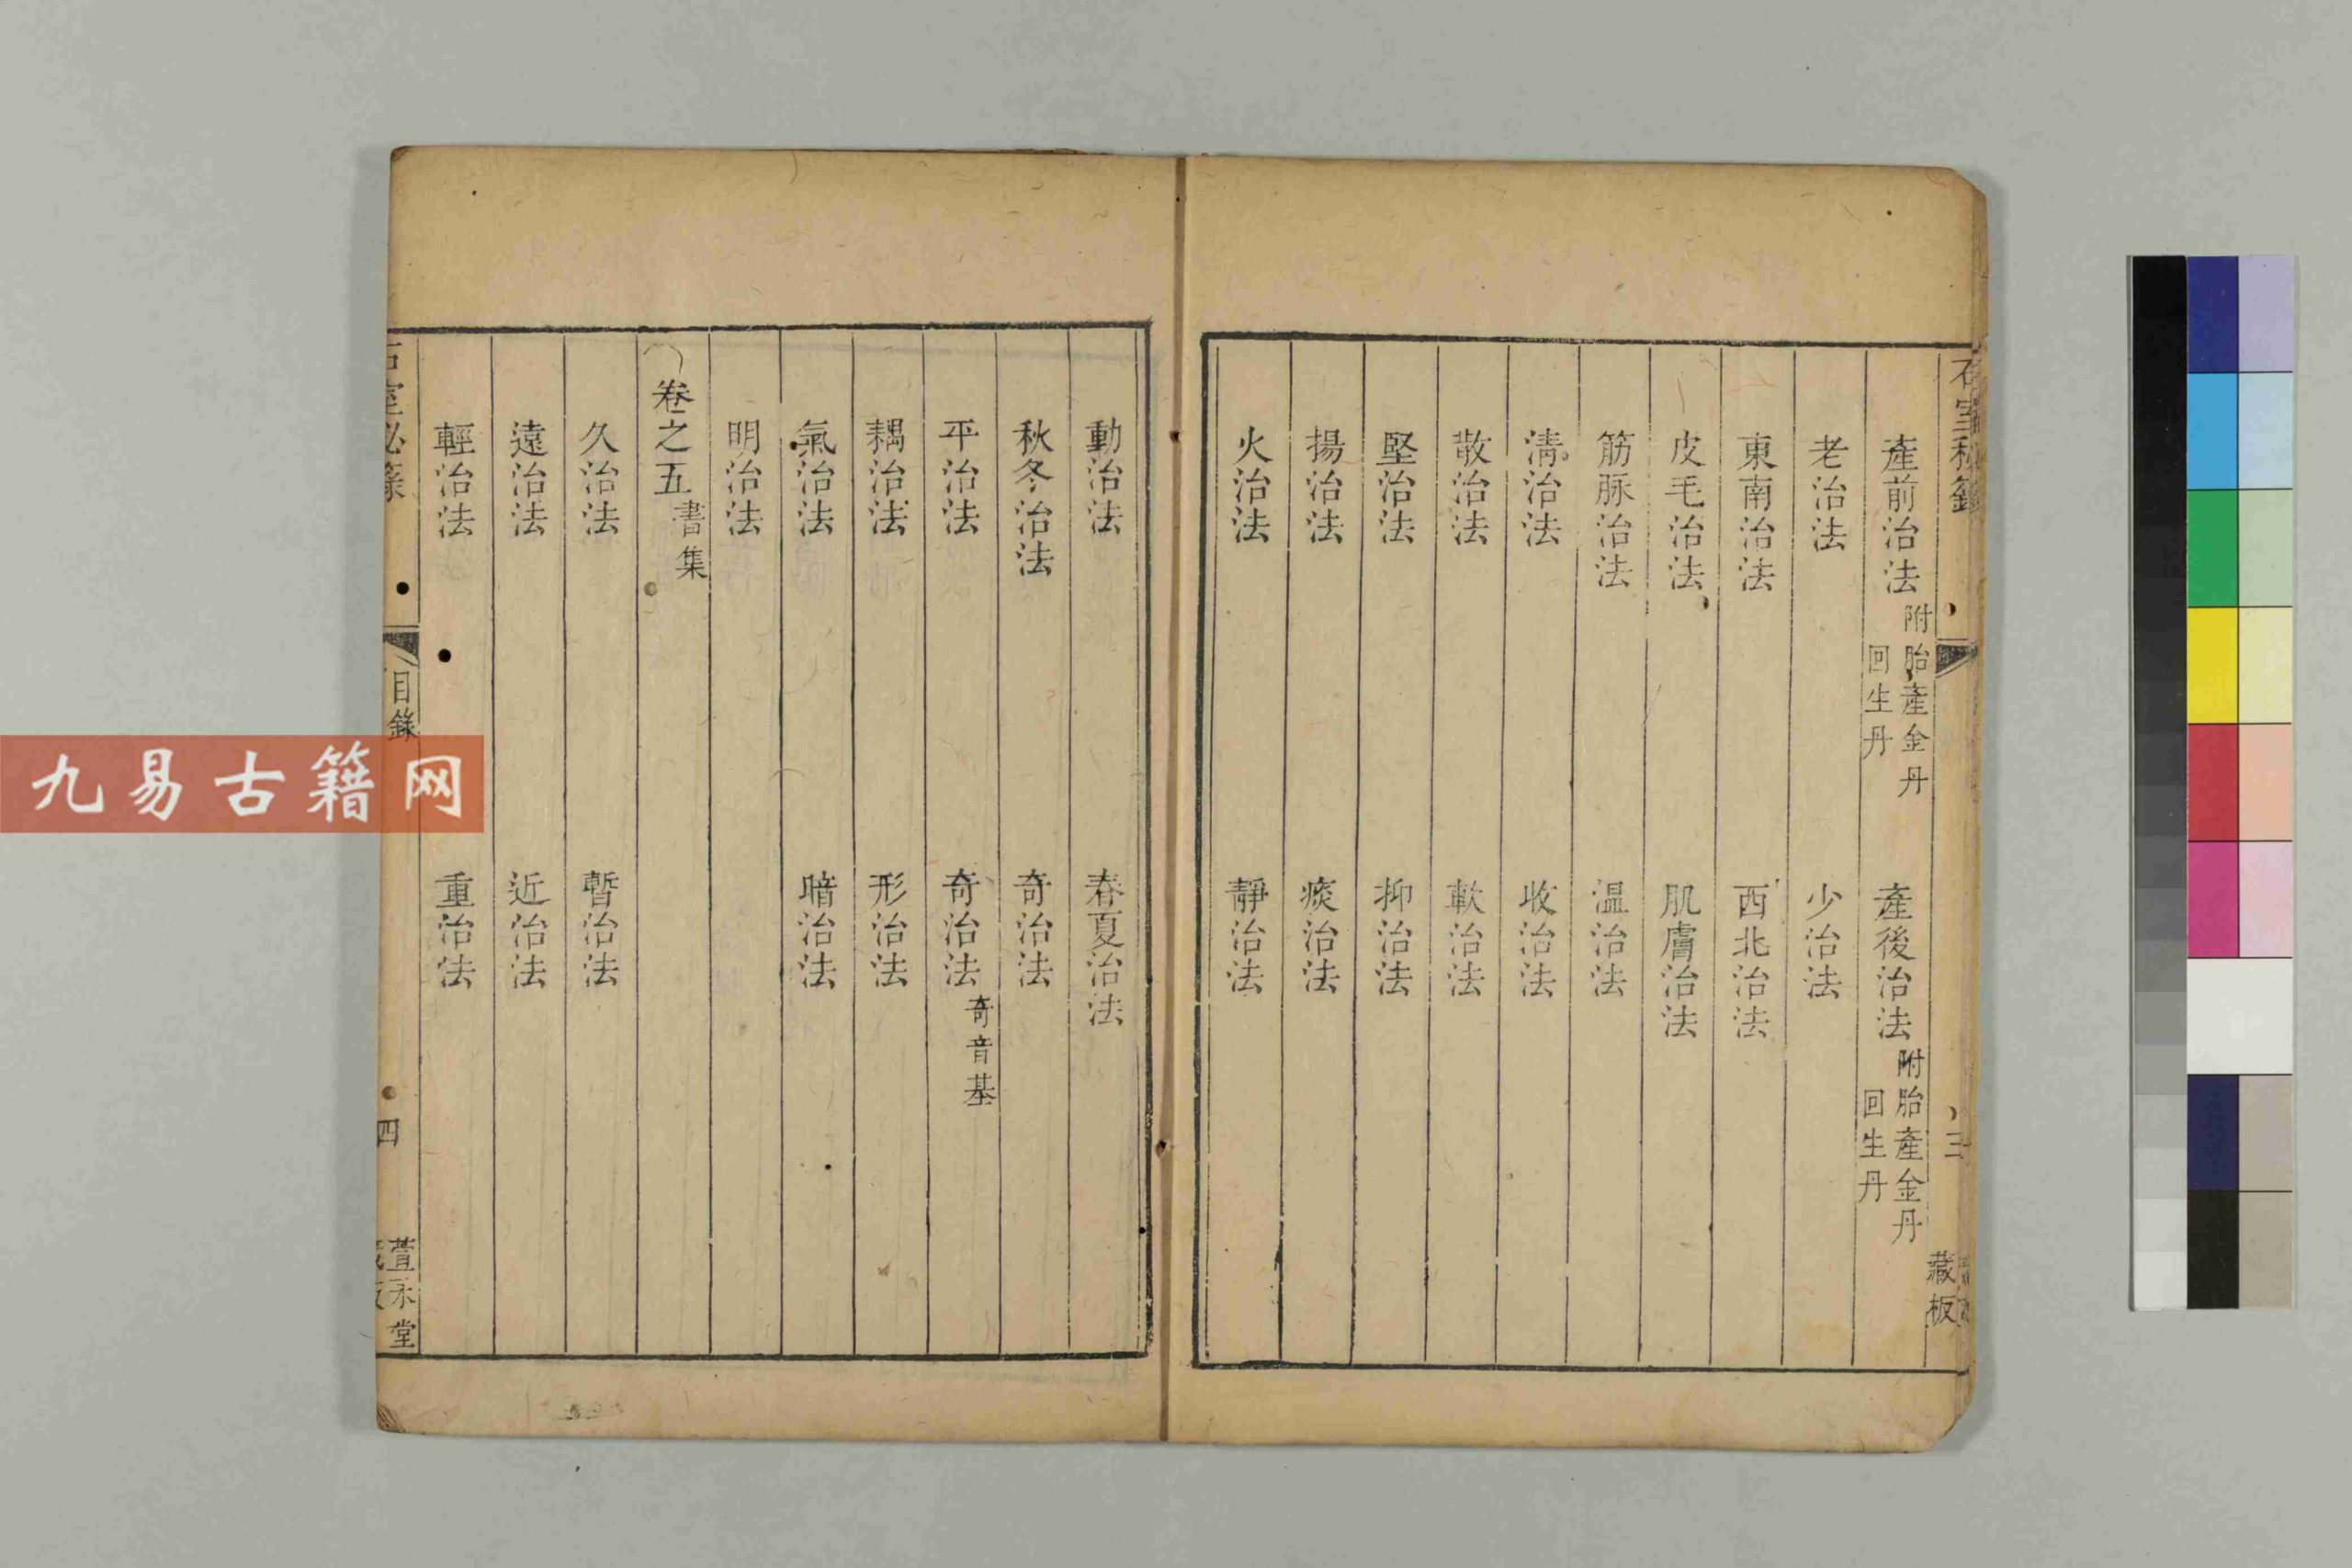 石室秘錄
三
藏板
產前治法 附胎產金丹 回生丹
產後治法 附胎產金丹 回生丹
老治法
少治法
東南治法
西北治法
皮毛治法
肌膚治法
筋脉治法
溫治法
清治法
收治法
散治法
軟治法
堅治法
抑治法
揚治法
痰治法
火治法
靜治法
動治法
春夏治法
秋冬治法
奇治法
平治法
奇治法 奇音基
耦治法
形治法
氣治法
暗治法
明治法
卷之五 書集
久治法
暫治法
遠治法
近治法
輕治法
重治法
石室秘錄
目錄
四
萱永堂
藏板
九易古籍网